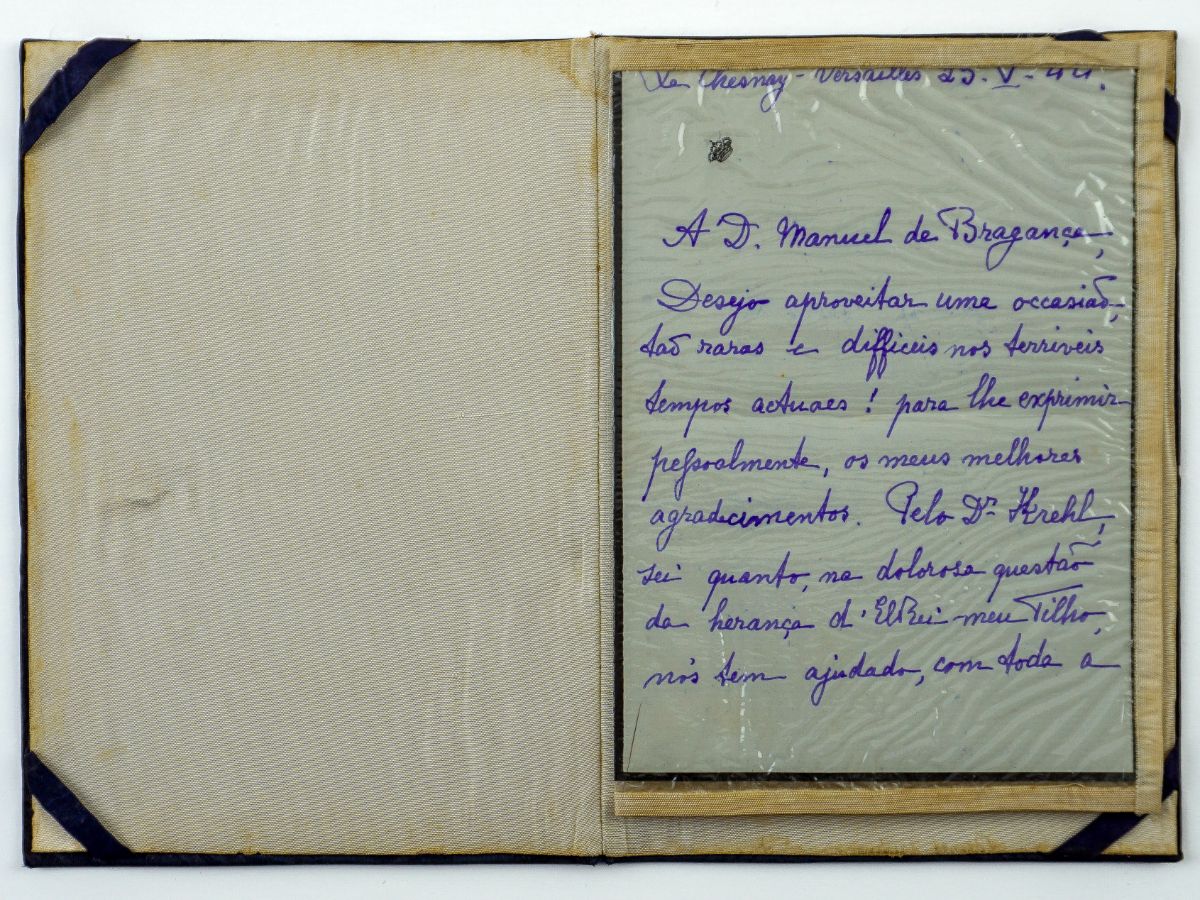 Le Chesnay - Versailles 25-V-44.
A D. Manuel de Bragança,
Desejo aproveitar uma occasiaõ,
taõ raras e difficeis nos terriveis
tempos actuaes! para lhe exprimir
peſsoalmente, os meus melhores
agradecimentos. Pelo Dr. Krehl,
sei quanto, na dolorosa questão
da herança d'ElRei meu Filho,
nós tem ajudado, com toda a